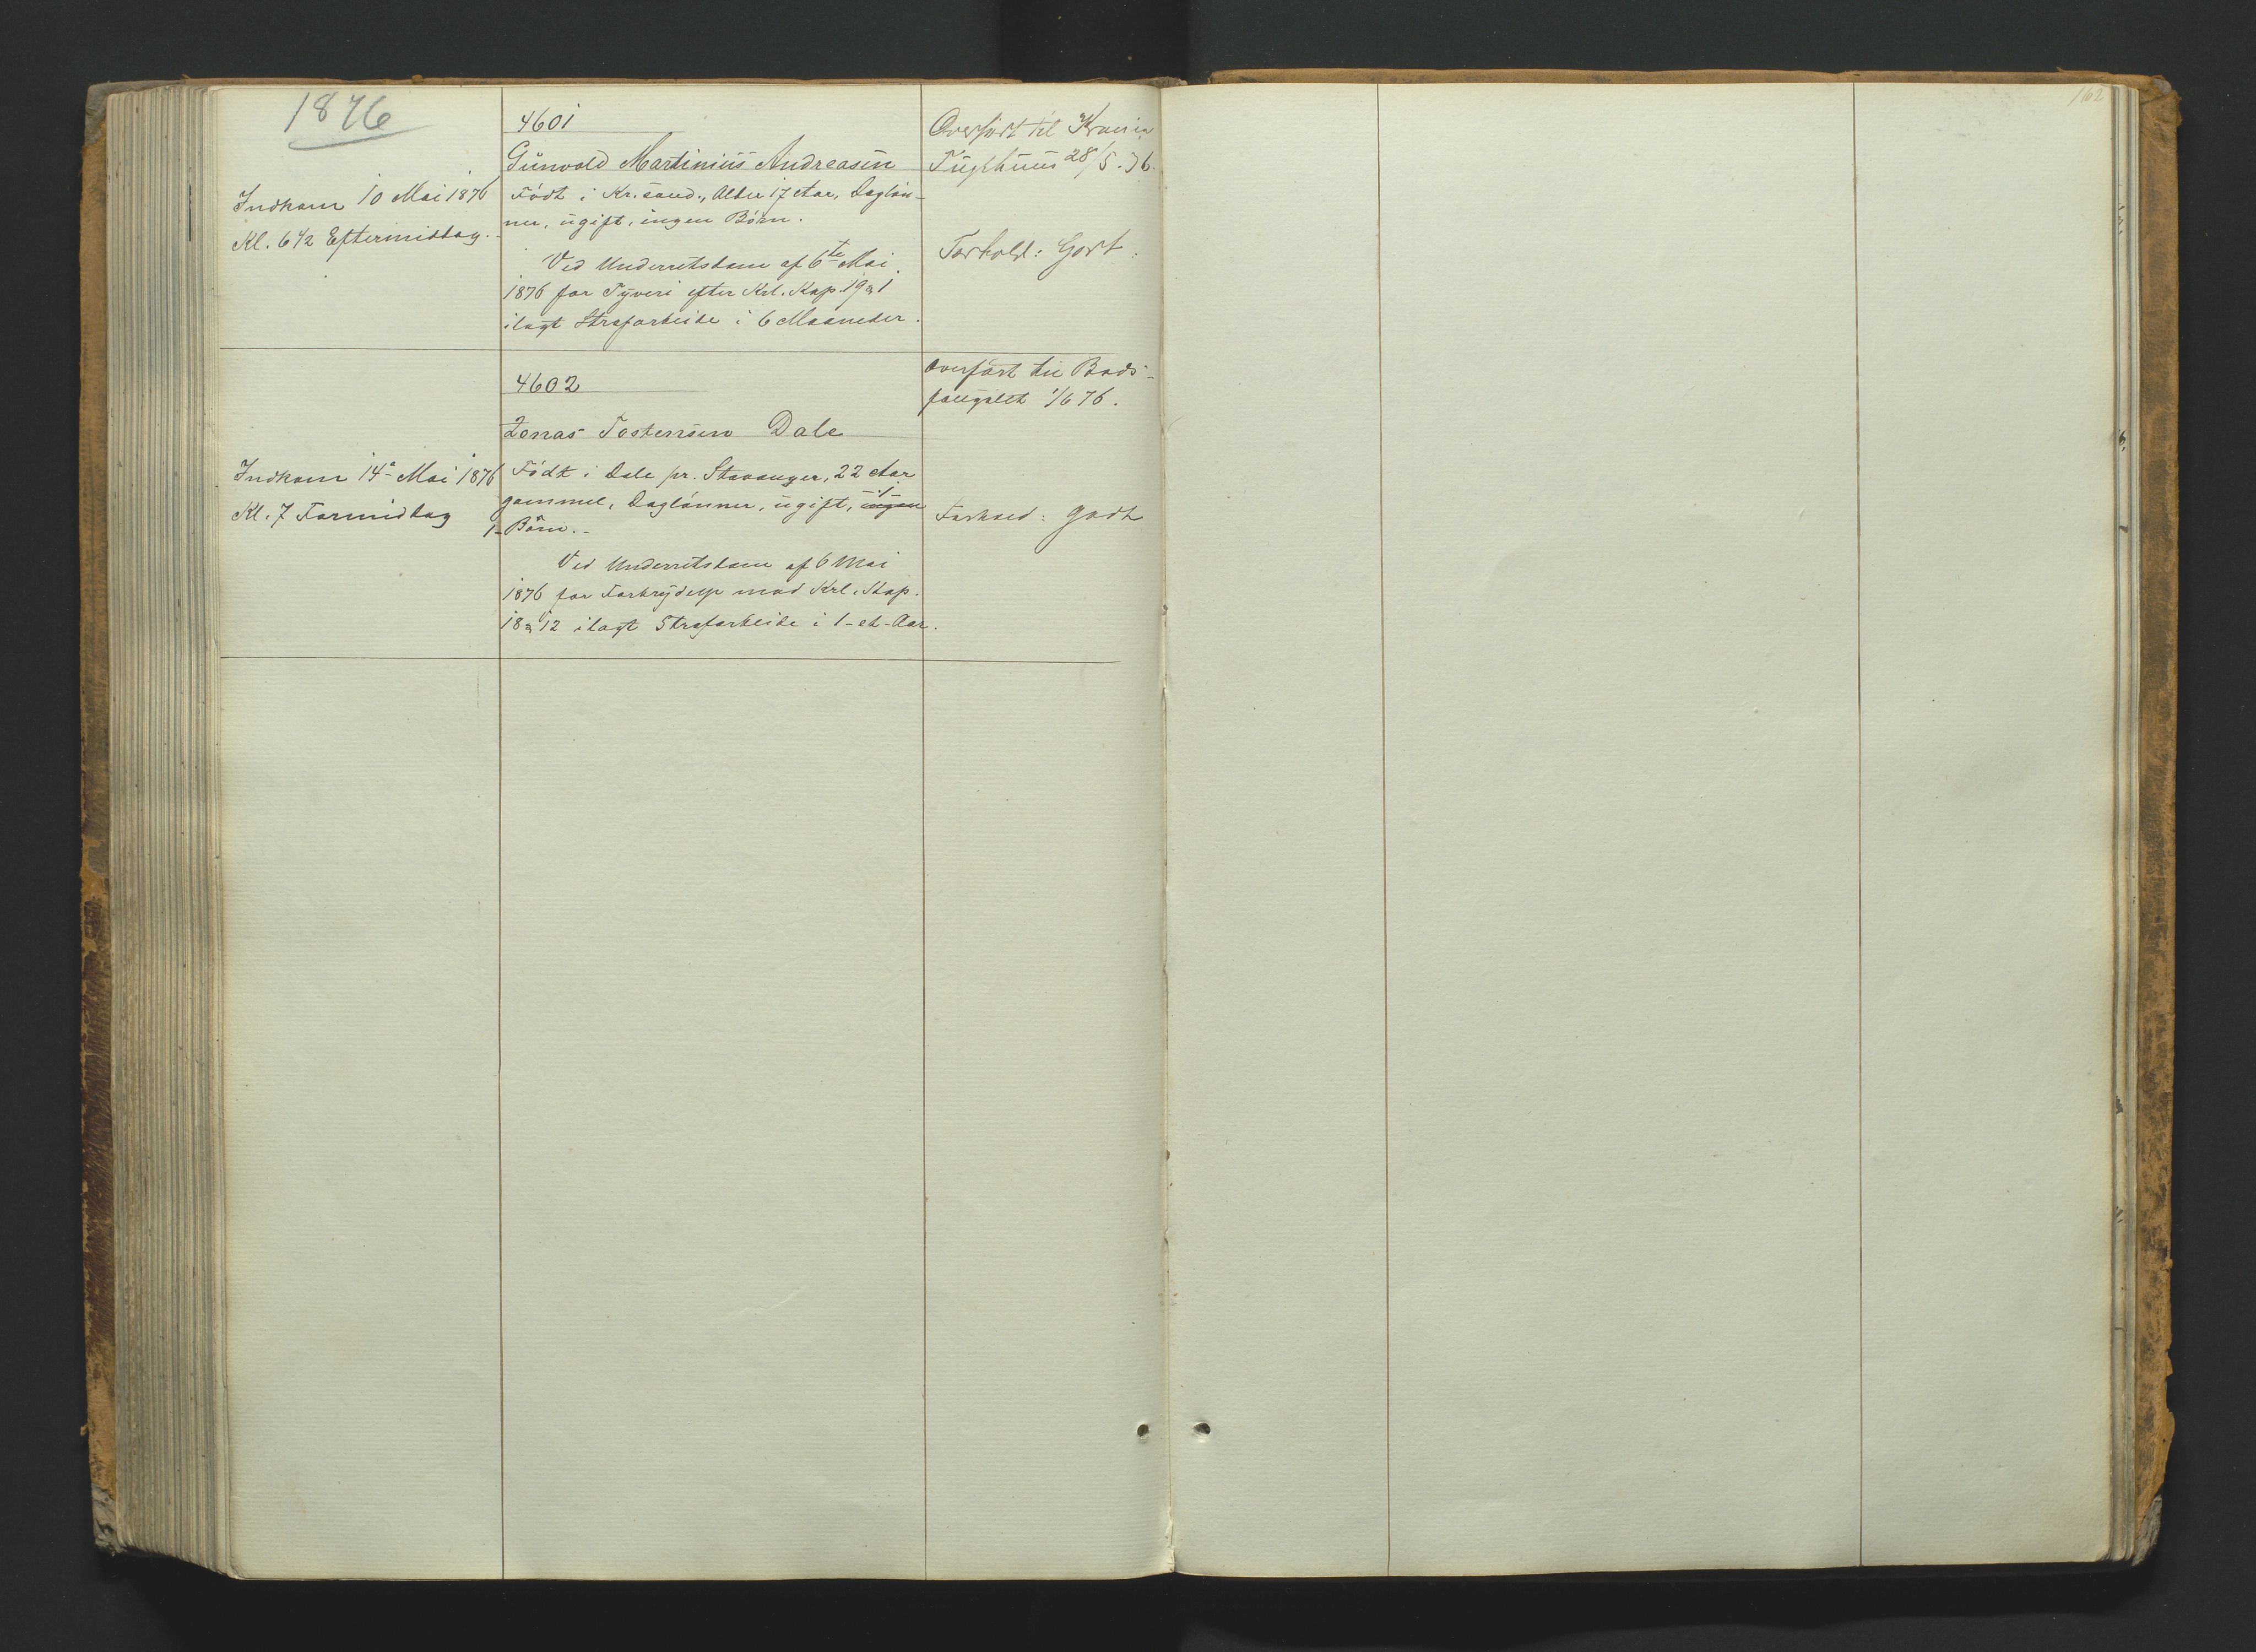 1876
162
4601
Gunvald Martinius Andreasen
Indkom 10 Mai 1876
Kl. 6 1/2 Eftermiddag.
Født i Kr.sand., Alder 17 Aar, Dagløn-
ner, ugift, ingen Børn.
Ved Underretsdom af 6te Mai
1876 for Tyveri efter Krl. Kap. 19 § 1
ilagt Strafarbeide i 6 Maaneder.
Overført til Krania
Tugthuus 28/5.76.
Forhold: Godt.
4602
Zonas Tostensen Dale
Indkom 14de Mai 1876
Kl. 7 Formiddag
Født i Dale pr. Stavanger, 22 Aar
gammel, Daglønner, ugift, ingen -1-
1- Børn.-
Ved Underretsdom af 6 Mai
1876 for Forbrydelse mod Krl. Kap.
18 § 12 ilagt Strafarbeide i 1-et-Aar.
Overført til Bods-
fængslet 1/6 76.
Forhold: godt